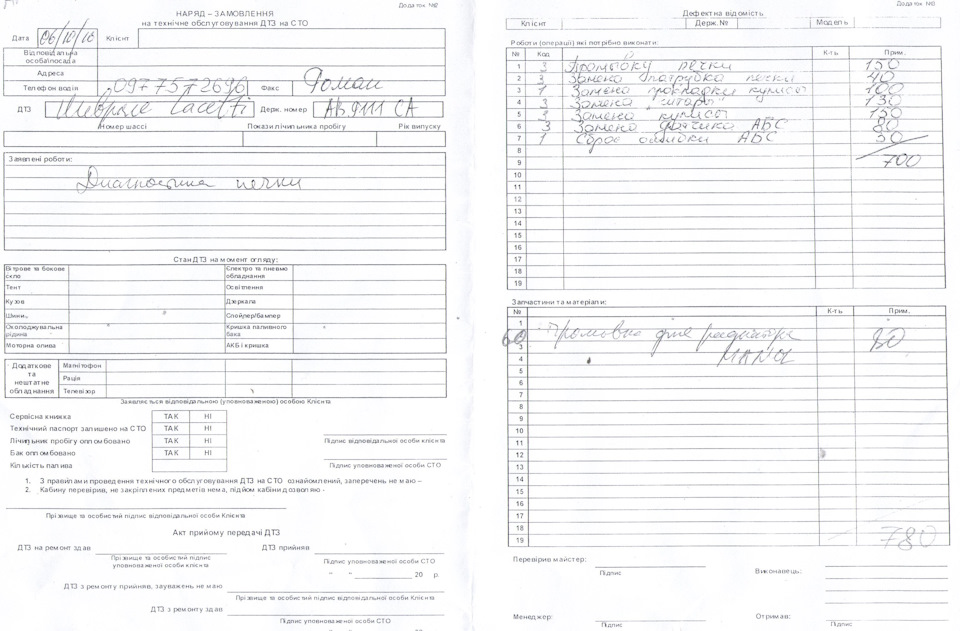 Додаток №2
НАРЯД – ЗАМОВЛЕННЯ
на технічне обслуговування ДТЗ на СТО
Дата 06/10/16 Клієнт
Відповідальна особа/посада
Адреса
Телефон водія 0977572696 Факс Роман
ДТЗ Шевролє Lacetti Держ. номер АВ 9111 СА
Номер шассі Покази лічильника пробігу Рік випуску
Заявлені роботи:
Диагностика печки
Стан ДТЗ на момент огляду:
Вітрове та бокове скло Електро та пневмо обладнання
Тент Освітлення
Кузов Дзеркала
Шини Спойлер/бампер
Охолоджувальна рідина Кришка паливного бака
Моторна олива АКБ і кришка
Додаткове та нештатне обладнання
Магнітофон
Рація
Телевізор
Заявляється відповідальною (уповноваженою) особою Клієнта
Сервісна книжка ТАК НІ
Технічний паспорт залишено на СТО ТАК НІ
Лічильник пробігу опломбовано ТАК НІ
Підпис відповідальної особи клієнта
Бак опломбовано ТАК НІ
Кількість палива
Підпис уповноваженої особи СТО
1. З правилами проведення технічного обслуговування ДТЗ на СТО ознайомлений, заперечень не маю –
2. Кабину перевірив, не закріплених предметів нема, підйом кабіни дозволяю -
Прізвище та особистий підпис відповідальної особи Клієнта
Акт прийому передачі ДТЗ
ДТЗ на ремонт здав ДТЗ прийняв
Прізвище та особистий підпис уповноваженої особи клієнта
Підпис уповноваженої особи СТО
" " 20 р.
ДТЗ з ремонту прийняв, зауважень не маю
Прізвище та особистий підпис відповідальної особи Клієнта
ДТЗ з ремонту здав
Підпис уповноваженої особи СТО
Додаток №3
Дефектна відомість
Клієнт Держ.№ Модель
Роботи (операції) які потрібно виконати:
№ Код К-ть Прим.
1 3 Промывку печки 150
2 3 Замена патрубка печки 40
3 1 Замена прокладки кулисы 100
4 3 Замена "гитары" 130
5 3 Замена кулисы 150
6 3 Замена датчика АБС 80
7 1 Сброс ошибки АБС 50
8
9 700
10
11
12
13
14
15
16
17
18
19
Запчастини та матеріали:
№ К-ть Прим.
1
60 Промывка для радиатора 80
3
4 MANOL
5
6
7
8
9
10
11
12
13
14
15
16
17
18
19 780
Перевірив майстер: Виконавець:
Підпис
Менеджер: Отримав:
Підпис Підпис